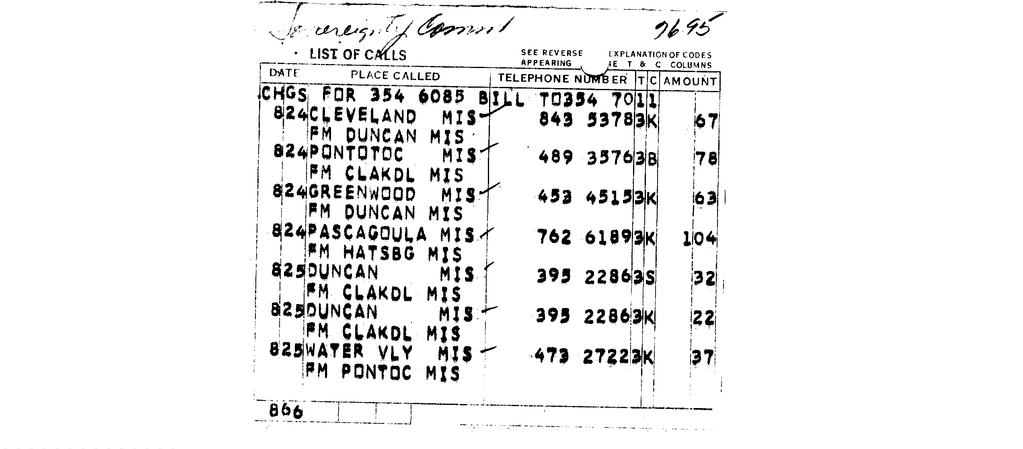 Sovereignty Comm 2695
LIST OF CALLS SEE REVERSE EXPLANATION OF CODES
APPEARING T & C COLUMNS
DATE PLACE CALLED TELEPHONE NUMBER T C AMOUNT
CHGS FOR 354 6085 BILL TO354 7011
824 CLEVELAND MIS 843 5378 3 K 67
FM DUNCAN MIS
824 PONTOTOC MIS 489 3576 3 B 78
FM CLAKDL MIS
824 GREENWOOD MIS 453 4515 3 K 63
FM DUNCAN MIS
824 PASCAGOULA MIS 762 6189 3 K 104
FM HATSBG MIS
825 DUNCAN MIS 395 2286 3 S 32
FM CLAKDL MIS
825 DUNCAN MIS 395 2286 3 K 22
FM CLAKDL MIS
825 WATER VLY MIS 473 2722 3 K 37
FM PONTOC MIS
866